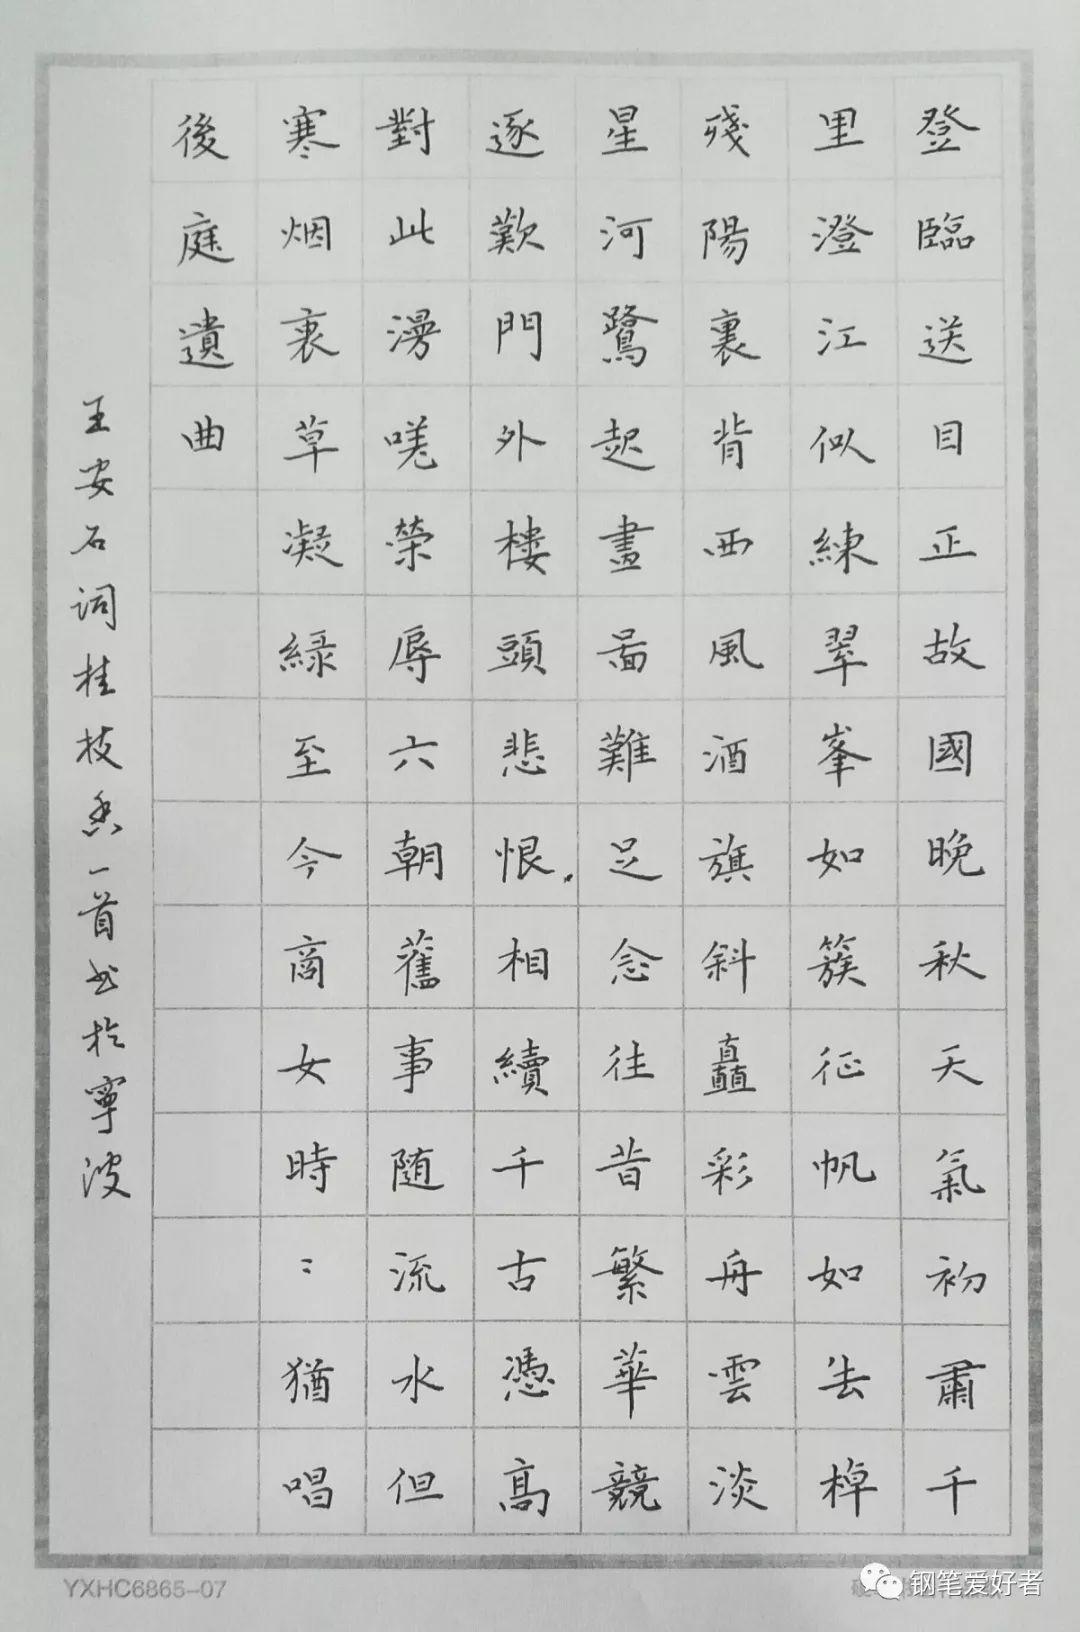 登臨送目正故國晚秋天氣初肅千
里澄江似練翠峯如簇征帆如去棹
殘陽裏背西風酒旗斜矗彩舟雲淡
星河鷺起畫啚難足念往昔繁華競
逐歎門外樓頭悲恨.相續千古憑高
對此漫嘆榮辱六朝舊事随流水但
寒烟衰草凝綠至今商女時〻猶唱
後庭遺曲
王安石词桂枝香一首书於寧波
YXHC6865-07
钢笔爱好者